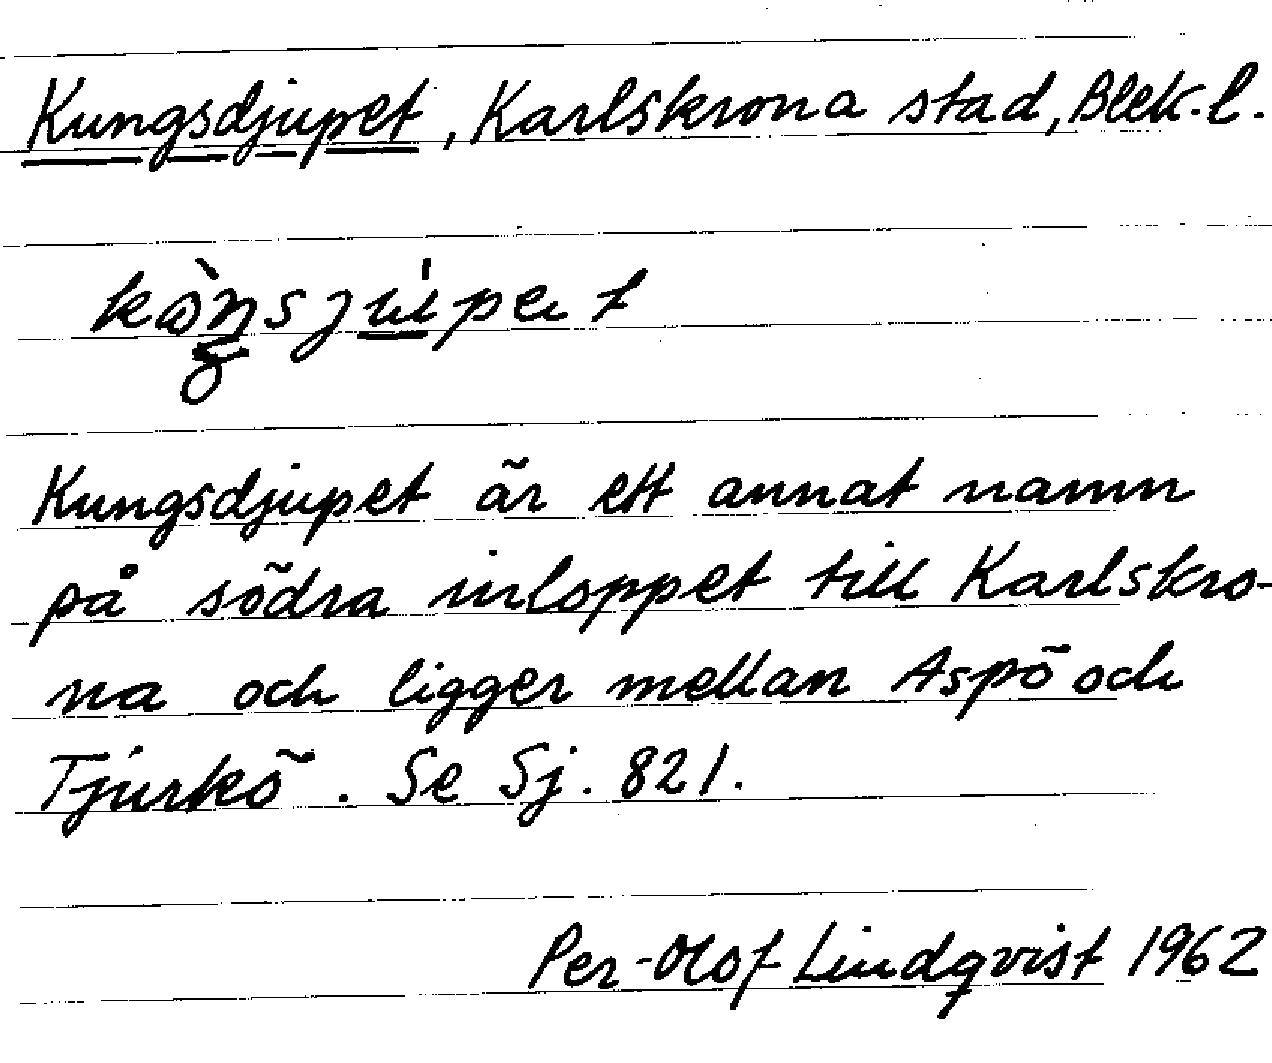 Kungsdjupet, Karlskrona stad, Blek. l.
Kungsdjupet är ett annat namn
på södra inloppet till Karlskro-
na och ligger mellan Aspö och
Tjurkö. Se Sj. 821.
Per-Olof Lindqvist 1962